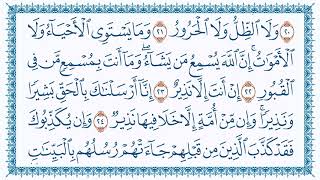 ٢٠ وَلَا الظِّلُّ وَلَا الْحَرُورُ ٢١ وَمَا يَسْتَوِي الْأَحْيَاءُ وَلَا
الْأَمْوَاتُ إِنَّ اللَّهَ يُسْمِعُ مَنْ يَشَاءُ وَمَا أَنتَ بِمُسْمِعٍ مَّن فِي
الْقُبُورِ ٢٢ إِنْ أَنتَ إِلَّا نَذِيرٌ ٢٣ إِنَّا أَرْسَلْنَاكَ بِالْحَقِّ بَشِيرًا
وَنَذِيرًا وَإِن مِّنْ أُمَّةٍ إِلَّا خَلَا فِيهَا نَذِيرٌ ٢٤ وَإِن يُكَذِّبُوكَ
فَقَدْ كَذَّبَ الَّذِينَ مِن قَبْلِهِمْ جَاءَتْهُمْ رُسُلُهُم بِالْبَيِّنَاتِ